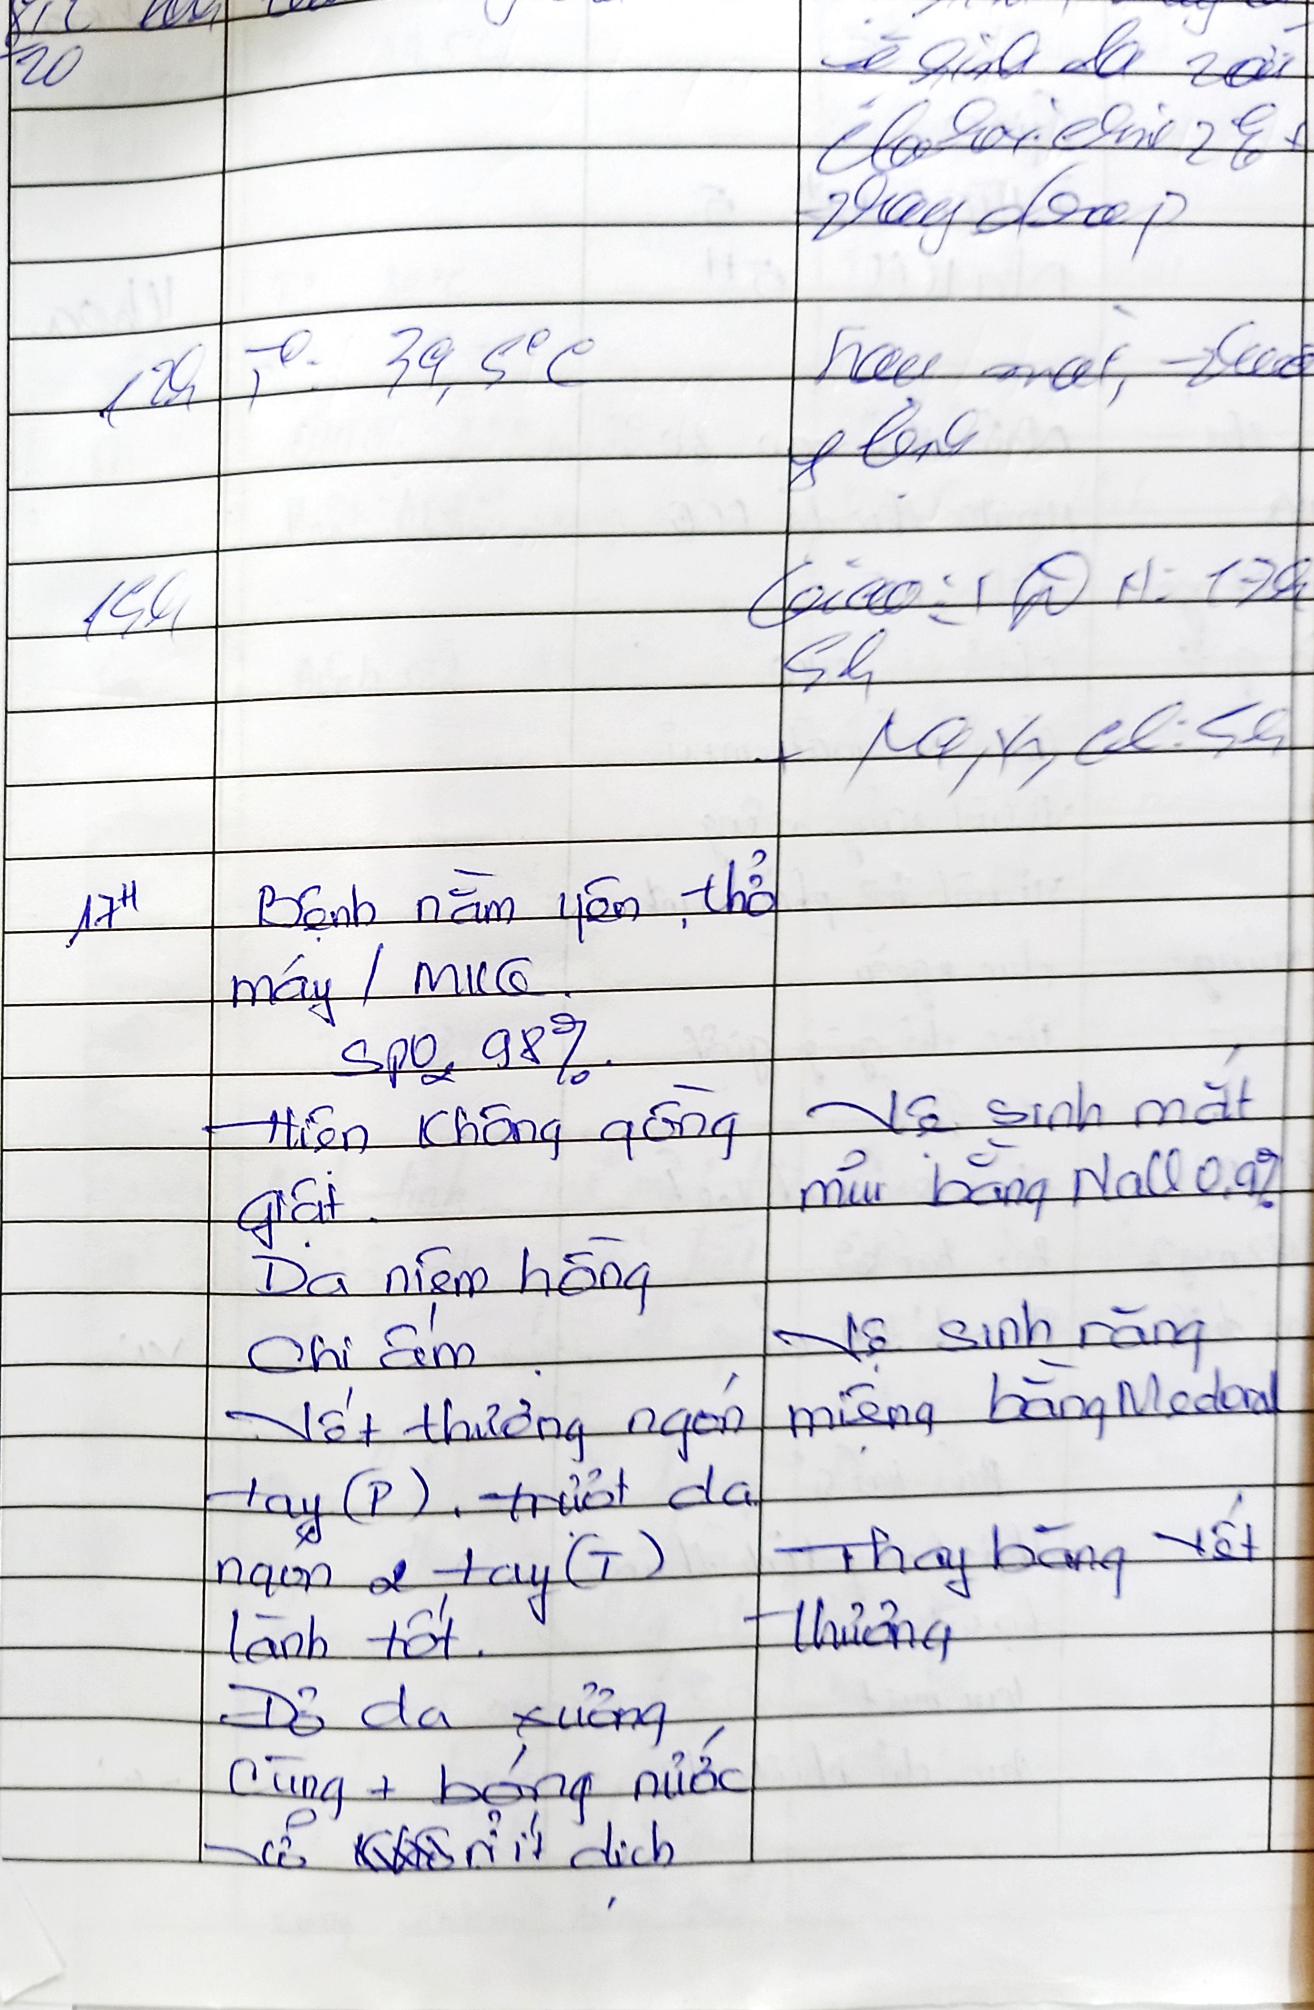 20
vệ sinh da
thay drap
12h T°: 39,5°C
lau mát,
y lệnh
15h
Giao: 17h
5h
+ Na, K, Cl: 5h
17H Bệnh nằm yên, thở
máy / MKQ.
SpO2 98%.
Hiện không gồng
giật.
Da niêm hồng
Chi ấm.
Vết thương ngón
tay (P). trượt da
ngón 2 tay (T)
lành tốt.
Đỏ da xương
cùng + bóng nước
vỡ rỉ ít dịch
Vệ sinh mắt
mũi bằng NaCl 0.9%
Vệ sinh răng
miệng bằng Medoral
Thay băng vết
thương